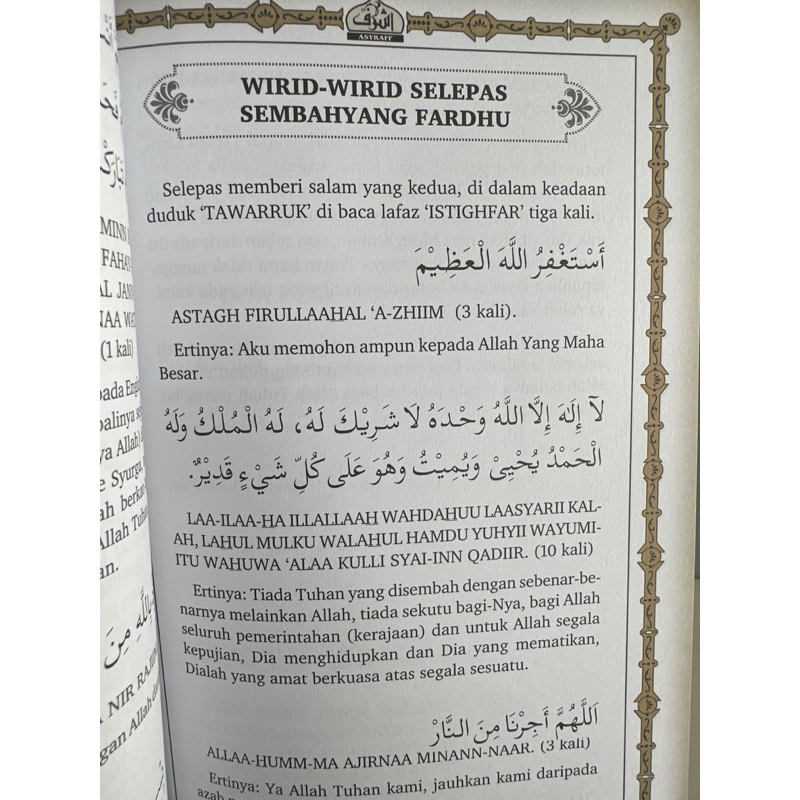 اشرف
ASYRAFF
WIRID-WIRID SELEPAS
SEMBAHYANG FARDHU
Selepas memberi salam yang kedua, di dalam keadaan
duduk ‘TAWARRUK’ di baca lafaz ‘ISTIGHFAR’ tiga kali.
أَسْتَغْفِرُ اللَّهَ الْعَظِيْم
ASTAGH FIRULLAAHAL ‘A-ZHIIM (3 kali).
Ertinya: Aku memohon ampun kepada Allah Yang Maha
Besar.
لَآ إِلَهَ إِلَّا اللَّهُ وَحْدَهُ لَا شَرِيْكَ لَهُ، لَهُ الْمُلْكُ وَلَهُ
الْحَمْدُ يُحْيِىْ وَيُمِيْتُ وَهُوَ عَلَى كُلِّ شَيْءٍ قَدِيْرٌ.
LAA-ILAA-HA ILLALLAAH WAHDAHUU LAASYARII KAL-
AH, LAHUL MULKU WALAHUL HAMDU YUHYII WAYUMI-
ITU WAHUWA ‘ALAA KULLI SYAI-INN QADIIR. (10 kali)
Ertinya: Tiada Tuhan yang disembah dengan sebenar-be-
narnya melainkan Allah, tiada sekutu bagi-Nya, bagi Allah
seluruh pemerintahan (kerajaan) dan untuk Allah segala
kepujian, Dia menghidupkan dan Dia yang mematikan,
Dialah yang amat berkuasa atas segala sesuatu.
اَللَّهُمَّ أَجِرْنَا مِنَ النَّارْ
ALLAA-HUMM-MA AJIRNAA MINANN-NAAR. (3 kali)
Ertinya: Ya Allah Tuhan kami, jauhkan kami daripada
azab